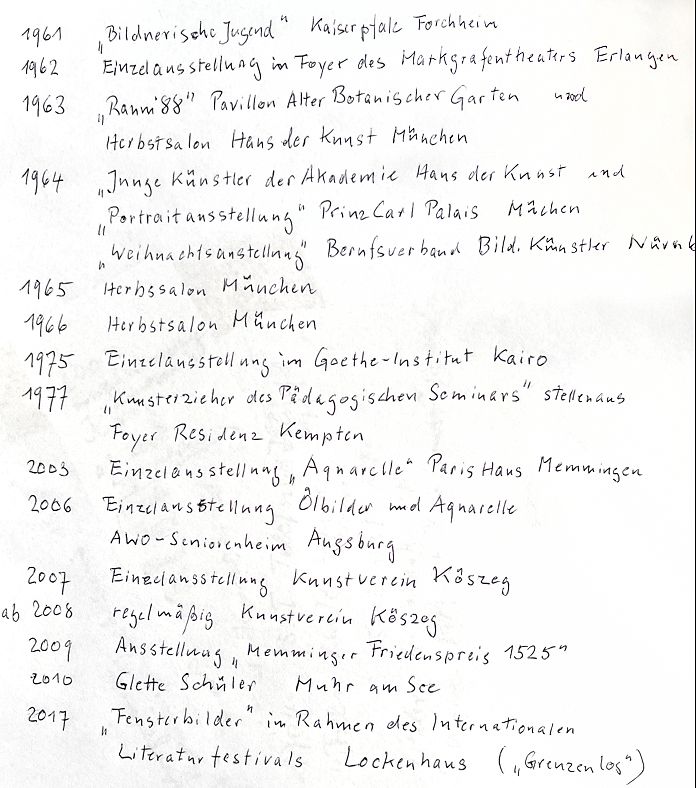 1961 „Bildnerische Jugend" Kaiserpfalz Forchheim
1962 Einzelausstellung im Foyer des Markgrafentheaters Erlangen
1963 „Raum '88" Pavillon Alter Botanischer Garten und
Herbstsalon Haus der Kunst München
1964 „Junge Künstler der Akademie Haus der Kunst und
„Portraitausstellung" Prinz Carl Palais Müchen
„Weihnachtsanstellung" Berufsverband Bild. Künstler Nürnb
1965 Herbssalon München
1966 Herbstsalon München
1975 Einzelausstellung im Goethe-Institut Kairo
1977 „Kunsterzieher des Pädagogischen Seminars" stellenaus
Foyer Residenz Kempten
2003 Einzelausstellung „Aquarelle" Paris Haus Memmingen
2006 Einzelausstellung Ölbilder und Aquarelle
AWO-Seniorenheim Augsburg
2007 Einzelausstellung Kunstverein Kőszeg
ab 2008 regelmäßig Kunstverein Kőszeg
2009 Ausstellung „Memminger Friedenspreis 1525"
2010 Glette Schüler Muhr am See
2017 „Fensterbilder" im Rahmen des Internationalen
Literaturfestivals Lockenhaus („Grenzenlos")